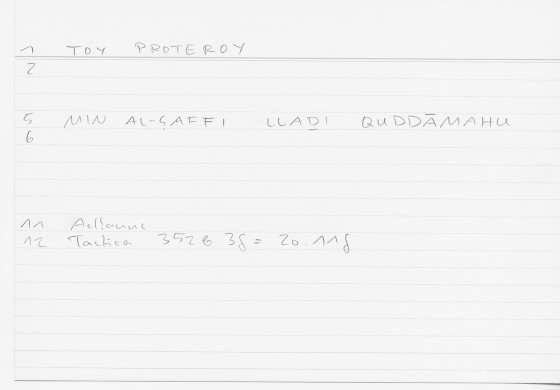 1 TOY PROTEROY
2
5 MIN AL-ṢAFFI LLAḎI QUDDĀMAHU
6
11 Aelianus
12 Tactica 352 b 3f = 20.11f